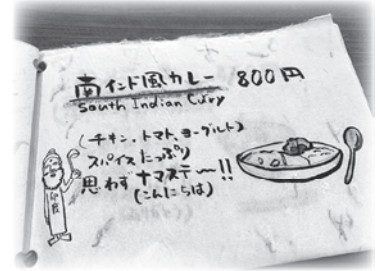 南インド風カレー 800円
South Indian Curry
(チキン、トマト、ヨーグルト)
スパイスたっぷり
思わずナマステ〜!!
(こんにちは)